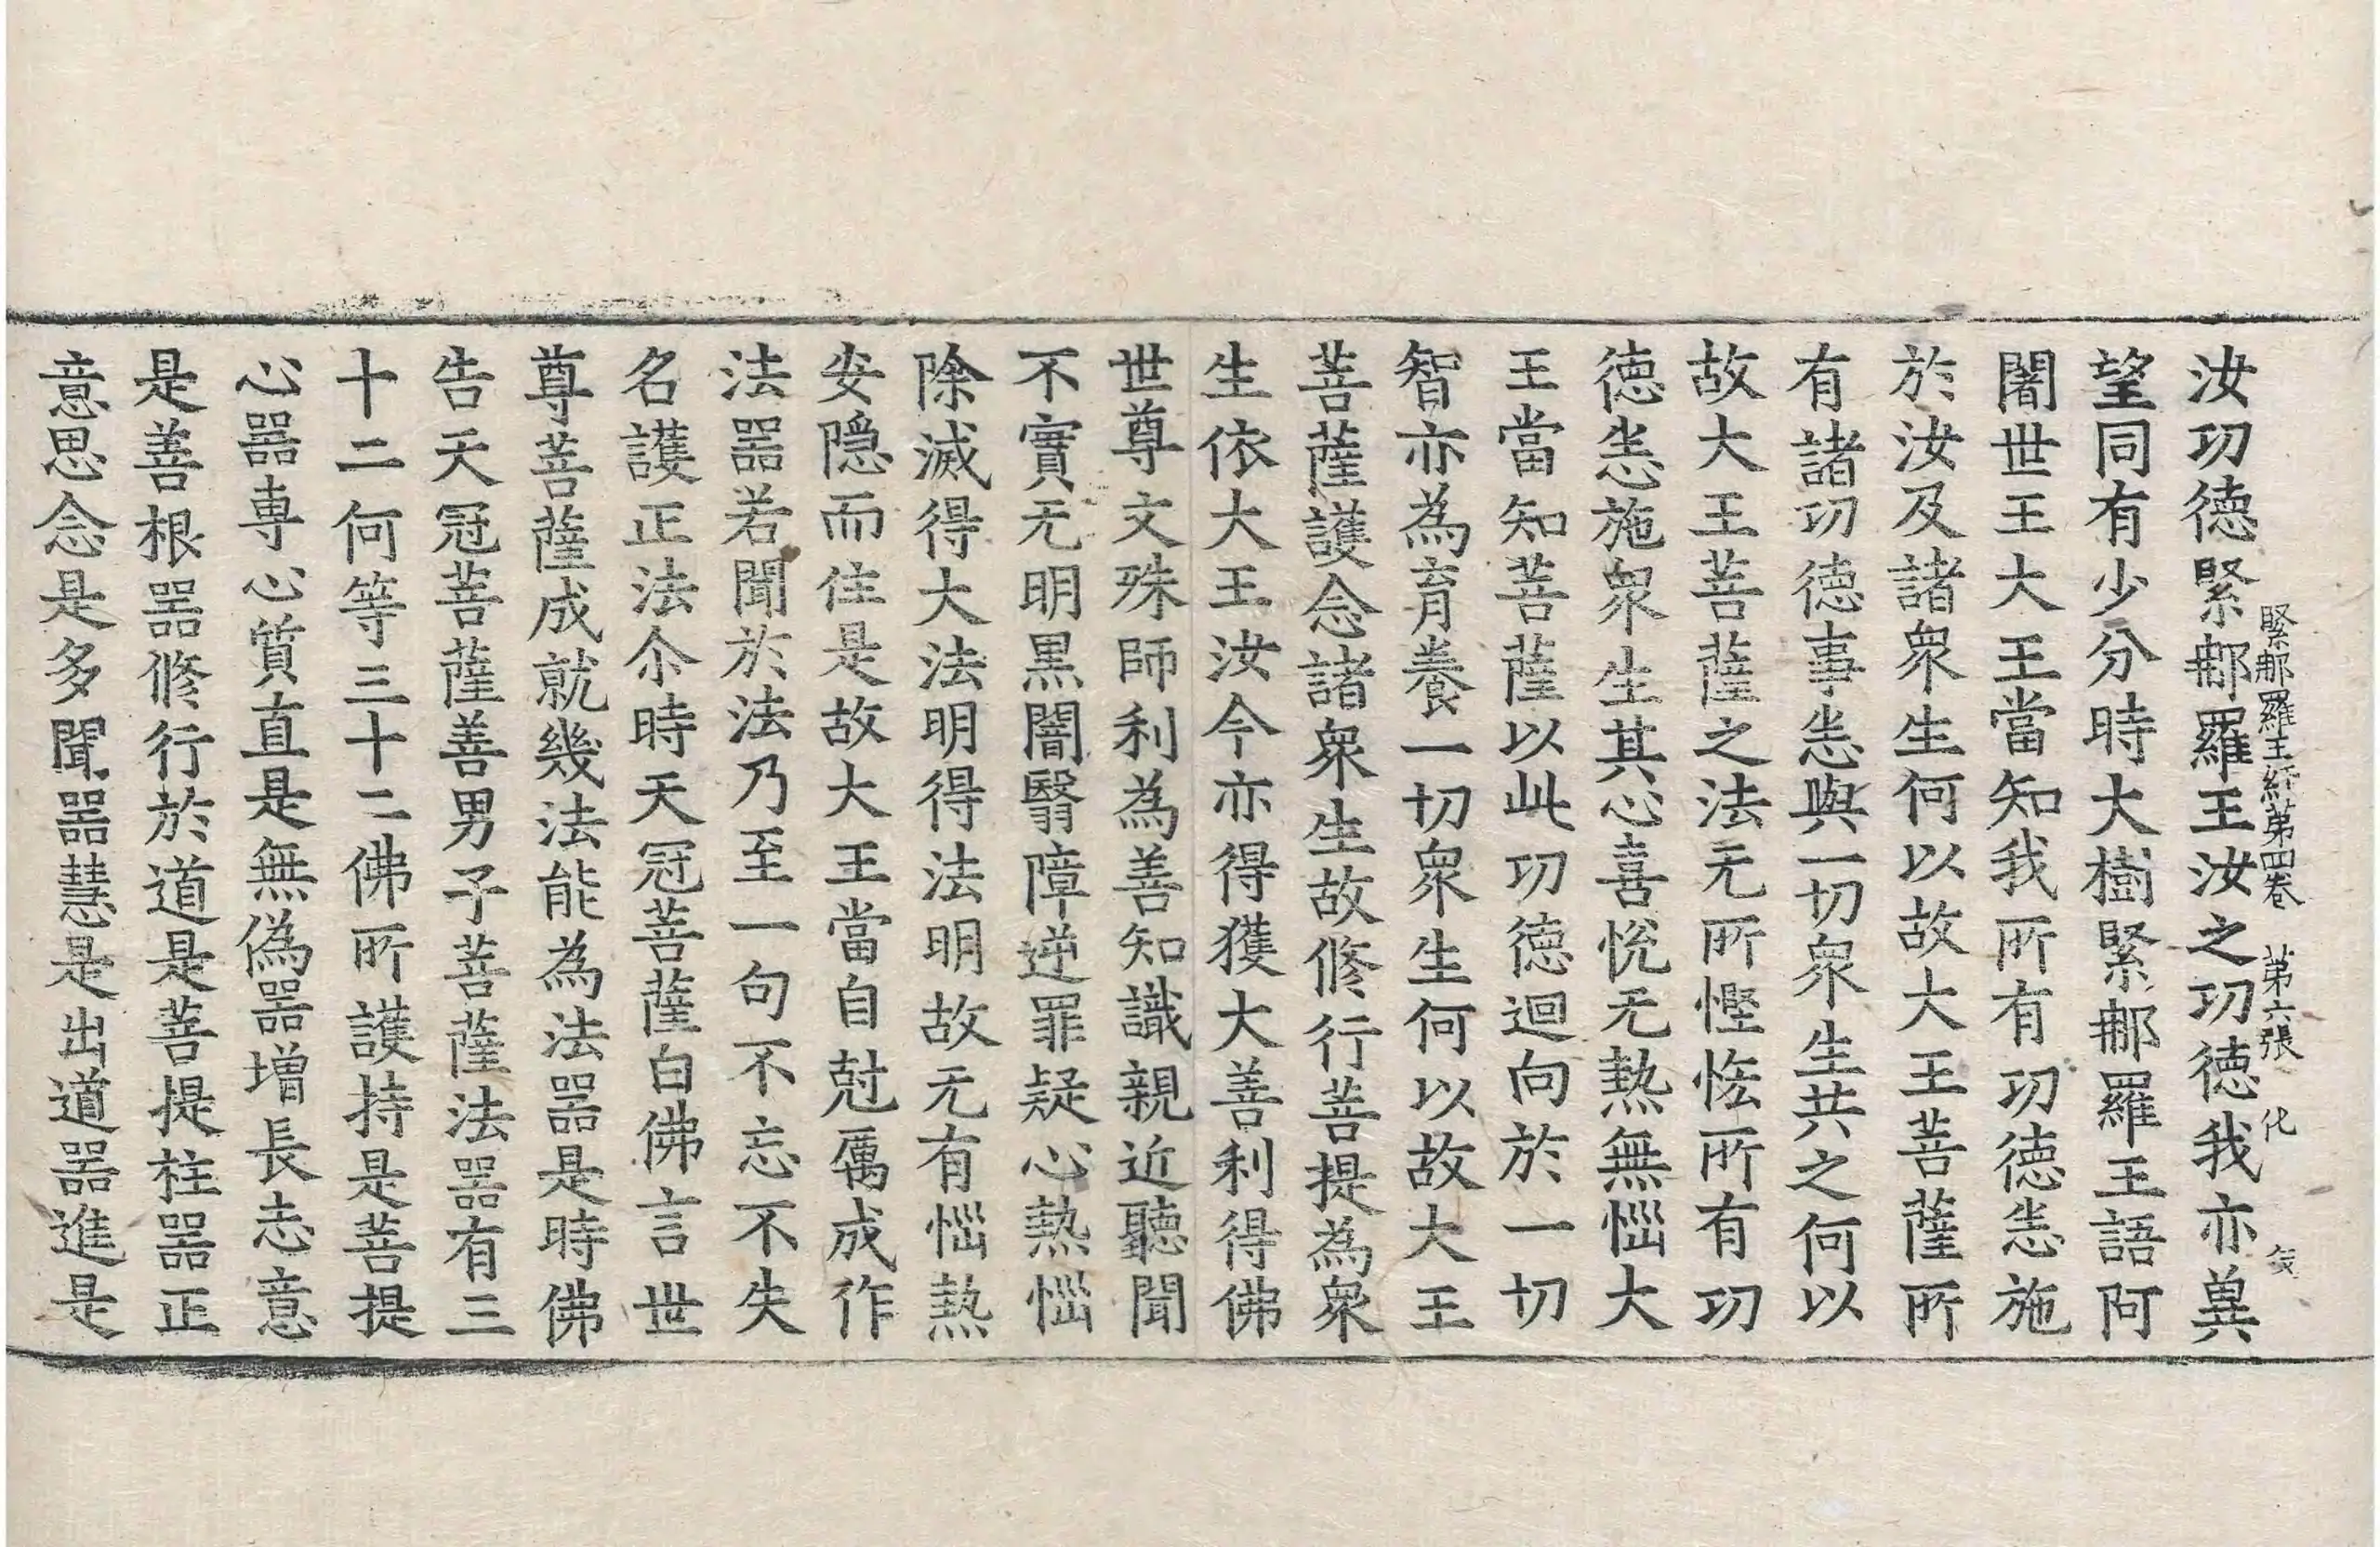 緊那羅王経第四卷 第六張 化
汝功德緊那羅王汝之功德我亦異
望同有少分時大樹緊那羅王語阿
闍世王大王當知我所有功德恙施
於汝及諸衆生何以故大王菩薩所
有諸功德事恙與一切衆生共之何以
故大王菩薩之法无所慳悋所有功
德恙施衆生其心喜悅无熱無惱大
王當知菩薩以此功德迴向於一切
智亦為育養一切衆生何以故大王
菩薩護念諸衆生故修行菩提為衆
生依大王汝今亦得獲大善利得佛
世尊文殊師利為善知識親近聽聞
不實无明黒闇翳障逆罪疑心熱惱
除滅得大法明得法明故无有惱熱
安隱而住是故大王當自尅厲成作
法器若聞於法乃至一句不忘不失
名護正法尒時天冠菩薩白佛言世
尊菩薩成就幾法能為法器是時佛
告天冠菩薩善男子菩薩法器有三
十二何等三十二佛所護持是菩提
心器専心質直是無偽器增長志意
是善根器修行於道是菩提柱器正
意思念是多聞器慧是出道器進是